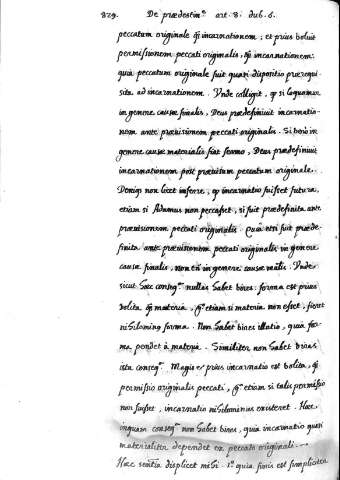 829. De prædestin.e art. 8. dub. 6.
peccatum originale q̃ incarnationem; et prius voluit
permissionem peccati originalis, q̃ incarnationem:
quia peccatum originale fuit quasi dispositio prærequi-
sita ad incarnationem. Vnde colligit, q̃ si loquamur
in genere causæ finalis, Deus prædefinivit incarnatio-
nem ante prævisionem peccati originalis. Si vero in
genere causæ materialis fiat sermo, Deus prædefinivit
incarnationem post prævisum peccatum originale.
Deniq; non licet inferre, q̃ incarnatio fuisset futura,
etiam si Adamus non peccasset, si fuit prædefinita ante
prævisionem peccati originalis. Quia etsi fuit præde-
finita ante prævisionem peccati originalis in genere
causæ finalis, non tñ in genere causæ mãlis. Vnde
sicut hæc conseq.a nullas habet vires: forma est prius
volita q̃ materia, g.o etiam si materia non esset, fieret
nihilominus forma. Non habet vires illatio, quia for-
ma pendet à materia. Similiter non habet vires
ista conseq.a Magis et prius incarnatio est volita, q̃
permissio originalis peccati, g.o etiam si talis permissio
non fuisset, incarnatio nihilominus existeret. Hæc
inquam conseq.a non habet vires, quia incarnatio quasi
materialiter dependet ex peccato originali.
Hæc sentẽtia displicet mihi. 1.o quia finis est simpliciter